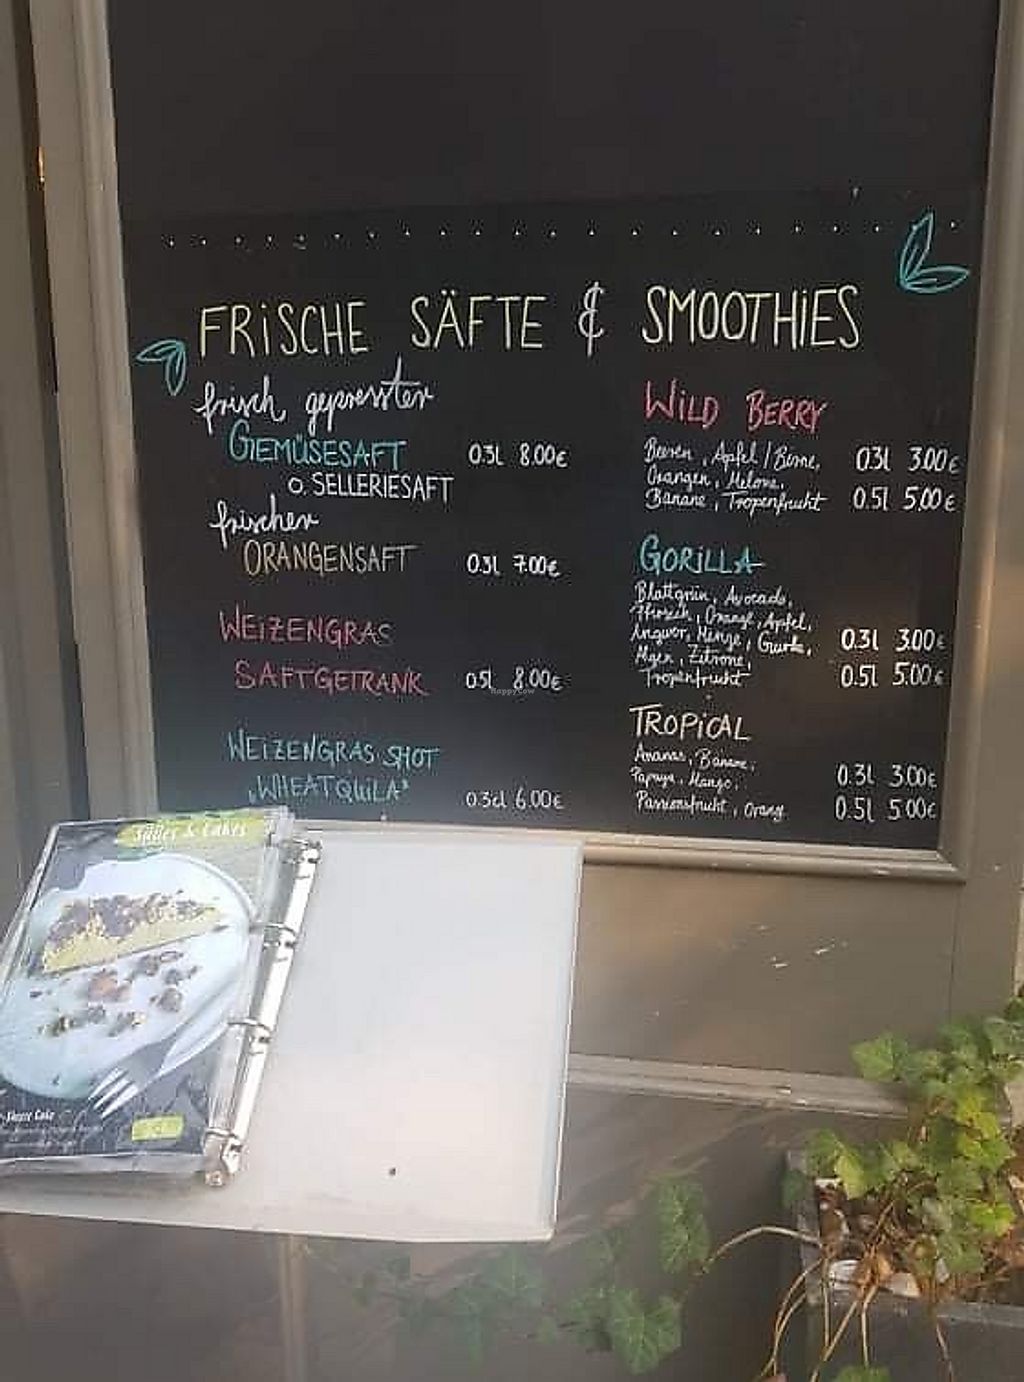 FRISCHE SÄFTE & SMOOTHIES
frisch gepresster
GEMÜSESAFT 0.3L 8.00€
o. SELLERIESAFT
frischer
ORANGENSAFT 0.3L 7.00€
WEIZENGRAS
SAFTGETRÄNK 0.5L 8.00€
WEIZENGRAS SHOT
„WHEATQUILA“ 0.3cl 6.00€
WILD BERRY
Beeren, Apfel / Birne, 0.3L 3.00€
Orangen, Melone,
Banane, Tropenfrucht 0.5L 5.00€
GORILLA
Blattgrün, Avocado,
Pfirsich, Orange, Apfel,
Ingwer, Minze, Gurke, 0.3L 3.00€
Algen, Zitrone,
Tropenfrucht 0.5L 5.00€
TROPICAL
Ananas, Banane,
Papaya, Mango, 0.3L 3.00€
Passionsfrucht, Orange 0.5L 5.00€
HappyCow
Süßes & Cakes